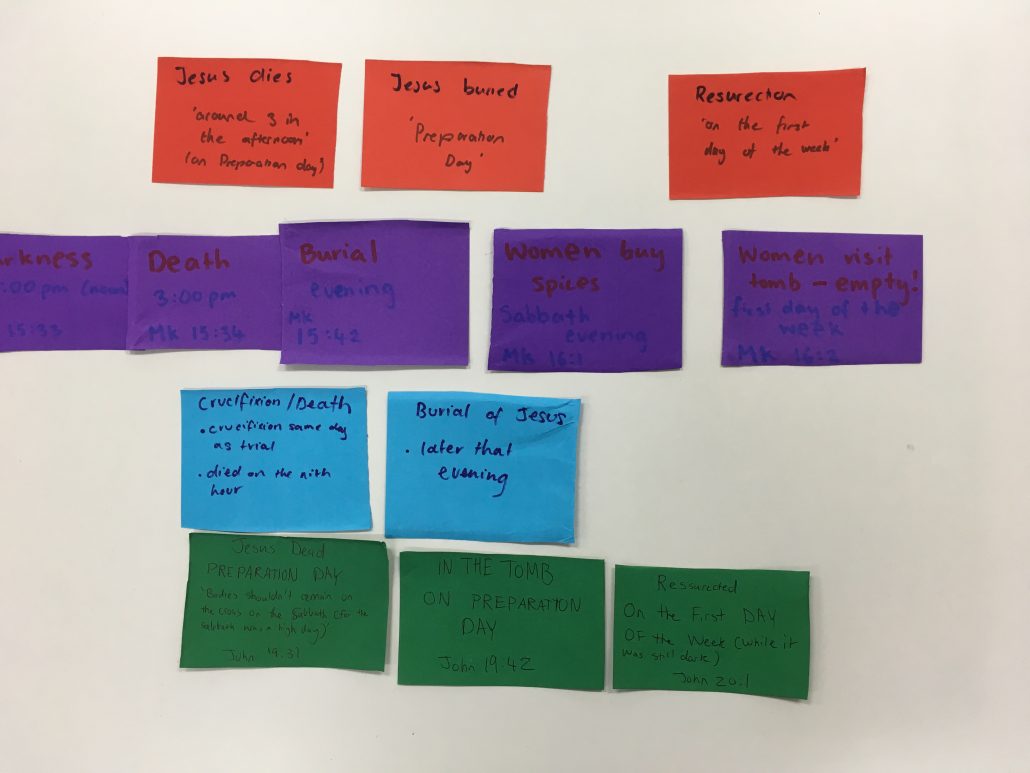 Jesus dies
'around 3 in
the afternoon'
(on Preparation day)
Jesus buried
'Preparation
Day'
Resurection
'on the first
day of the week'
arkness
:00 pm (noon)
15:33
Death
3:00pm
Mk 15:34
Burial
evening
Mk
15:42
Women buy
spices
Sabbath
evening
Mk 16:1
Women visit
tomb - empty!
first day of the
week
Mk 16:2
Crucifixion/Death
• crucifixion same day
as trial
• died on the
hour
Burial of Jesus
• later that
evening
Jesus Dead
PREPARATION DAY
'Bodies shouldn't remain on
the cross on the Sabbath (for the
Sabbath was a high day)'
John 19.31
IN THE TOMB
ON PREPARATION
DAY
John 19:42
Ressurected
On the First DAY
OF the Week (while it
was still dark)
John 20.1